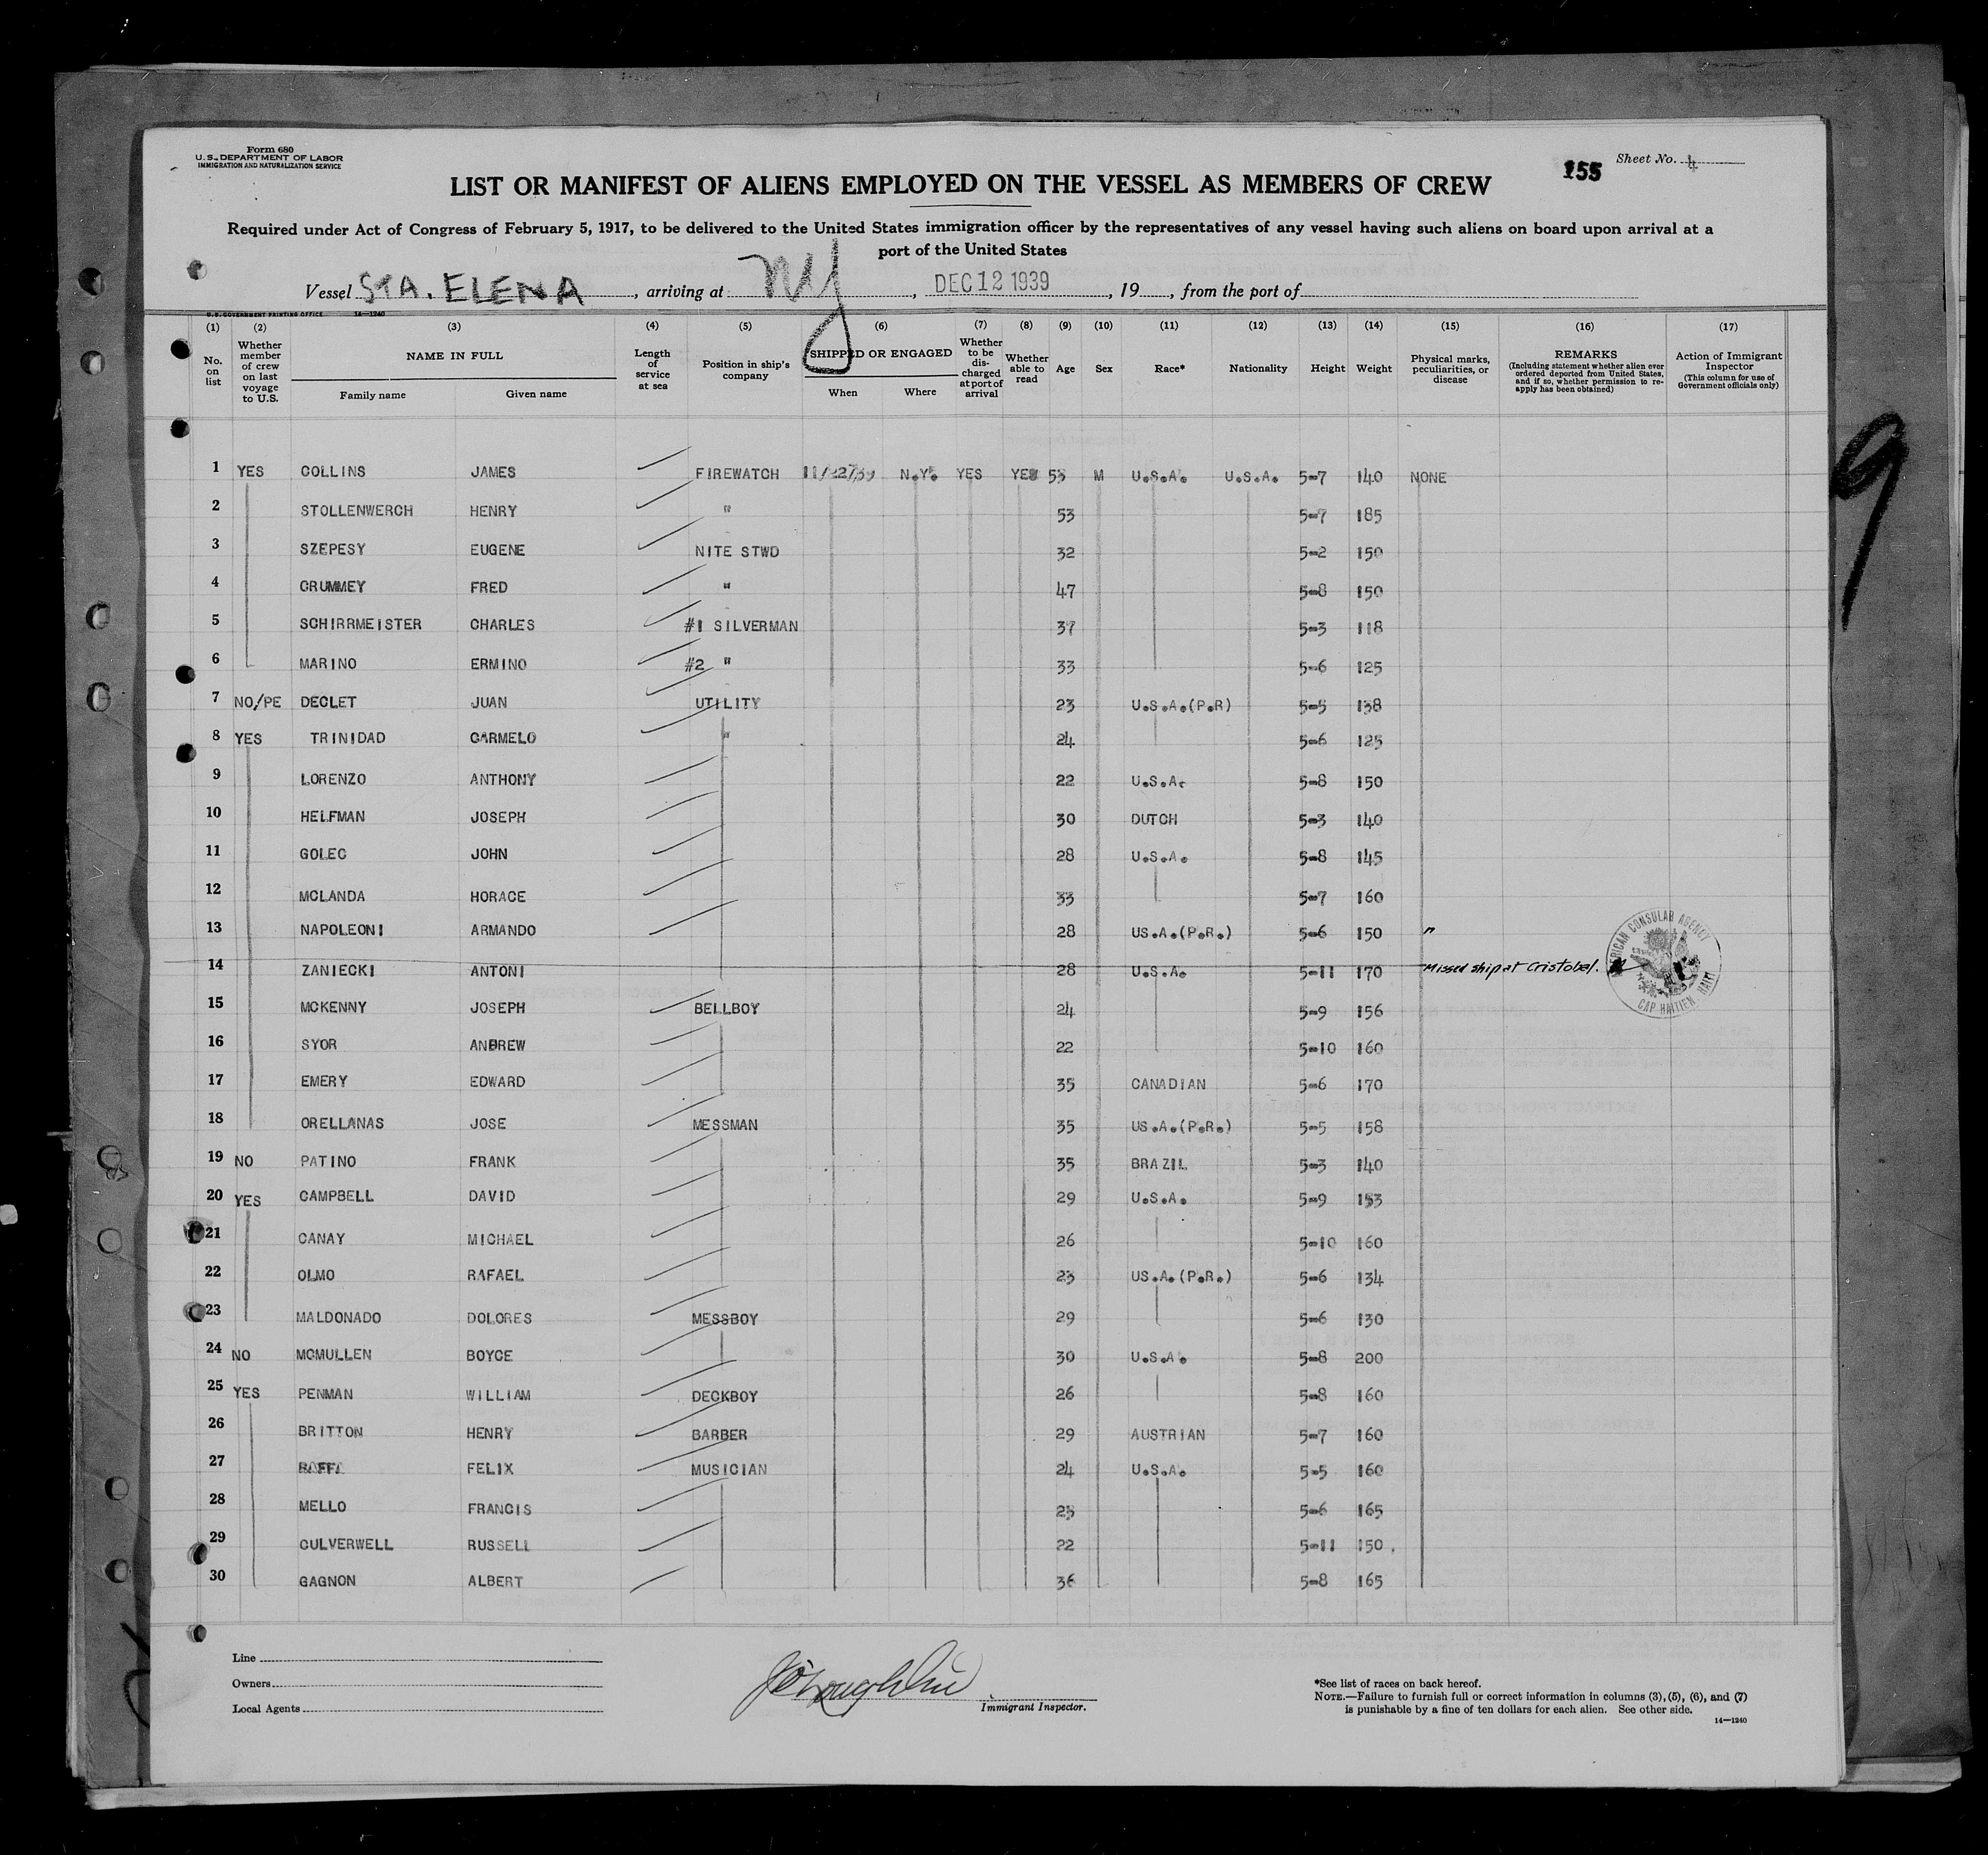 Form 680
U.S. DEPARTMENT OF LABOR
IMMIGRATION AND NATURALIZATION SERVICE
155
Sheet No. 4
LIST OR MANIFEST OF ALIENS EMPLOYED ON THE VESSEL AS MEMBERS OF CREW
Required under Act of Congress of February 5, 1917, to be delivered to the United States immigration officer by the representatives of any vessel having such aliens on board upon arrival at a
port of the United States
Vessel STA. ELENA, arriving at NY, DEC 12 1939, 19, from the port of
U.S. GOVERNMENT PRINTING OFFICE 14—1240
(1) (2) (3) (4) (5) (6) (7) (8) (9) (10) (11) (12) (13) (14) (15) (16) (17)
No. on list
Whether member of crew on last voyage to U.S.
NAME IN FULL
Family name
Given name
Length of service at sea
Position in ship's company
SHIPPED OR ENGAGED
When
Where
Whether to be discharged at port of arrival
Whether able to read
Age
Sex
Race*
Nationality
Height
Weight
Physical marks, peculiarities, or disease
REMARKS
(Including statement whether alien ever ordered deported from United States, and if so, whether permission to re-apply has been obtained)
Action of Immigrant Inspector
(This column for use of Government officials only)
1 YES COLLINS JAMES FIREWATCH 11/22/39 N.Y. YES YES 53 M U.S.A. U.S.A. 5-7 140 NONE
2 STOLLENWERCH HENRY " 53 5-7 185
3 SZEPESY EUGENE NITE STWD 32 5-2 150
4 GRUMMEY FRED " 47 5-8 150
5 SCHIRRMEISTER CHARLES #1 SILVERMAN 37 5-3 118
6 MARINO ERMINO #2 " 33 5-6 125
7 NO/PE DECLET JUAN UTILITY 23 U.S.A.(P.R) 5-5 138
8 YES TRINIDAD CARMELO " 24 5-6 125
9 LORENZO ANTHONY 22 U.S.A. 5-8 150
10 HELFMAN JOSEPH 30 DUTCH 5-3 140
11 GOLEC JOHN 28 U.S.A. 5-8 145
12 MCLANDA HORACE 33 5-7 160
13 NAPOLEONI ARMANDO 28 US.A.(P.R.) 5-6 150 "
14 ZANIECKI ANTONI 28 U.S.A. 5-11 170 Missed ship at Cristobal.
AMERICAN CONSULAR AGENCY
CAP HAITIEN, HAITI
15 MCKENNY JOSEPH BELLBOY 24 5-9 156
16 SYOR ANDREW 22 5-10 160
17 EMERY EDWARD 35 CANADIAN 5-6 170
18 ORELLANAS JOSE MESSMAN 35 US.A.(P.R.) 5-5 158
19 NO PATINO FRANK 35 BRAZIL 5-3 140
20 YES CAMPBELL DAVID 29 U.S.A. 5-9 153
21 CANAY MICHAEL 26 5-10 160
22 OLMO RAFAEL 23 US.A.(P.R.) 5-6 134
23 MALDONADO DOLORES MESSBOY 29 5-6 130
24 NO MCMULLEN BOYCE 30 U.S.A. 5-8 200
25 YES PENMAN WILLIAM DECKBOY 26 5-8 160
26 BRITTON HENRY BARBER 29 AUSTRIAN 5-7 160
27 FELIX MUSICIAN 24 U.S.A. 5-5 160
28 MELLO FRANCIS 23 5-6 165
29 CULVERWELL RUSSELL 22 5-11 150
30 GAGNON ALBERT 36 5-8 165
9
Line
Owners
Local Agents
Immigrant Inspector.
*See list of races on back hereof.
NOTE.—Failure to furnish full or correct information in columns (3), (5), (6), and (7)
is punishable by a fine of ten dollars for each alien. See other side.
14—1240